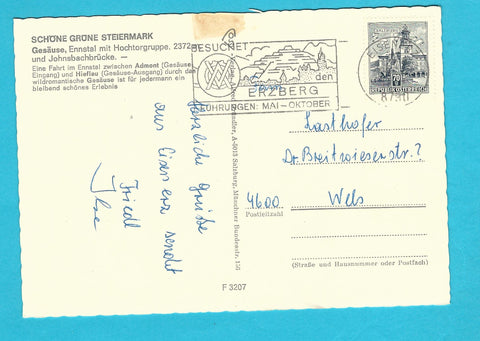 SCHÖNE GRÜNE STEIERMARK
Gesäuse, Ennstal mit Hochtorgruppe. 2372
und Johnsbachbrücke. —
Eine Fahrt im Ennstal zwischen Admont (Gesäuse-
Eingang) und Hieflau (Gesäuse-Ausgang) durch den
wildromantische Gesäuse ist für jedermann ein
bleibend schönes Erlebnis
BESUCHET
den
ERZBERG
FÜHRUNGEN: MAI – OKTOBER
8790
REPUBLIK ÖSTERREICH
Herzliche Grüße
aus Eisenerz sendet
Friedl
A-5013 Salzburg, Münchner Bundesstr. 155
Fam.
Kasthofer
Dr. Breitwieserstr. 7
4600 Wels
Postleitzahl
(Straße und Hausnummer oder Postfach)
F 3207